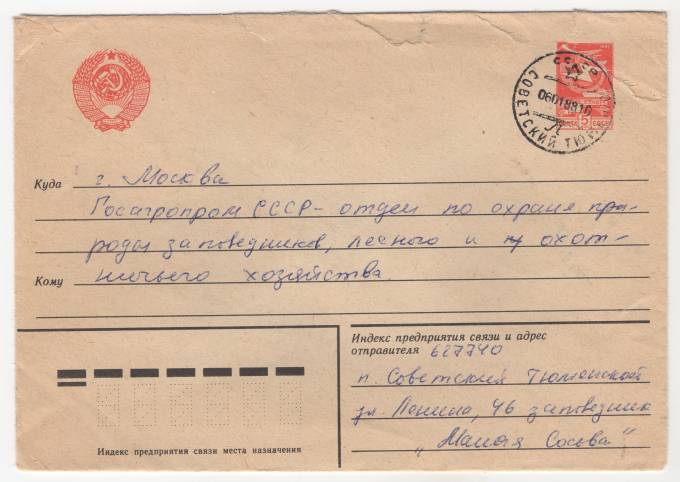 СССР
СОВЕТСКИЙ ТЮМ
06018810
5
Куда г. Москва
Госагропром СССР - отдел по охране при-
роды заповедников, лесного и охот-
Кому ничьего хозяйства.
Индекс предприятия связи и адрес
отправителя 627740
п. Советский Тюменской
ул. Ленина, 46 заповедник
„Малая Сосьва"
Индекс предприятия связи места назначения